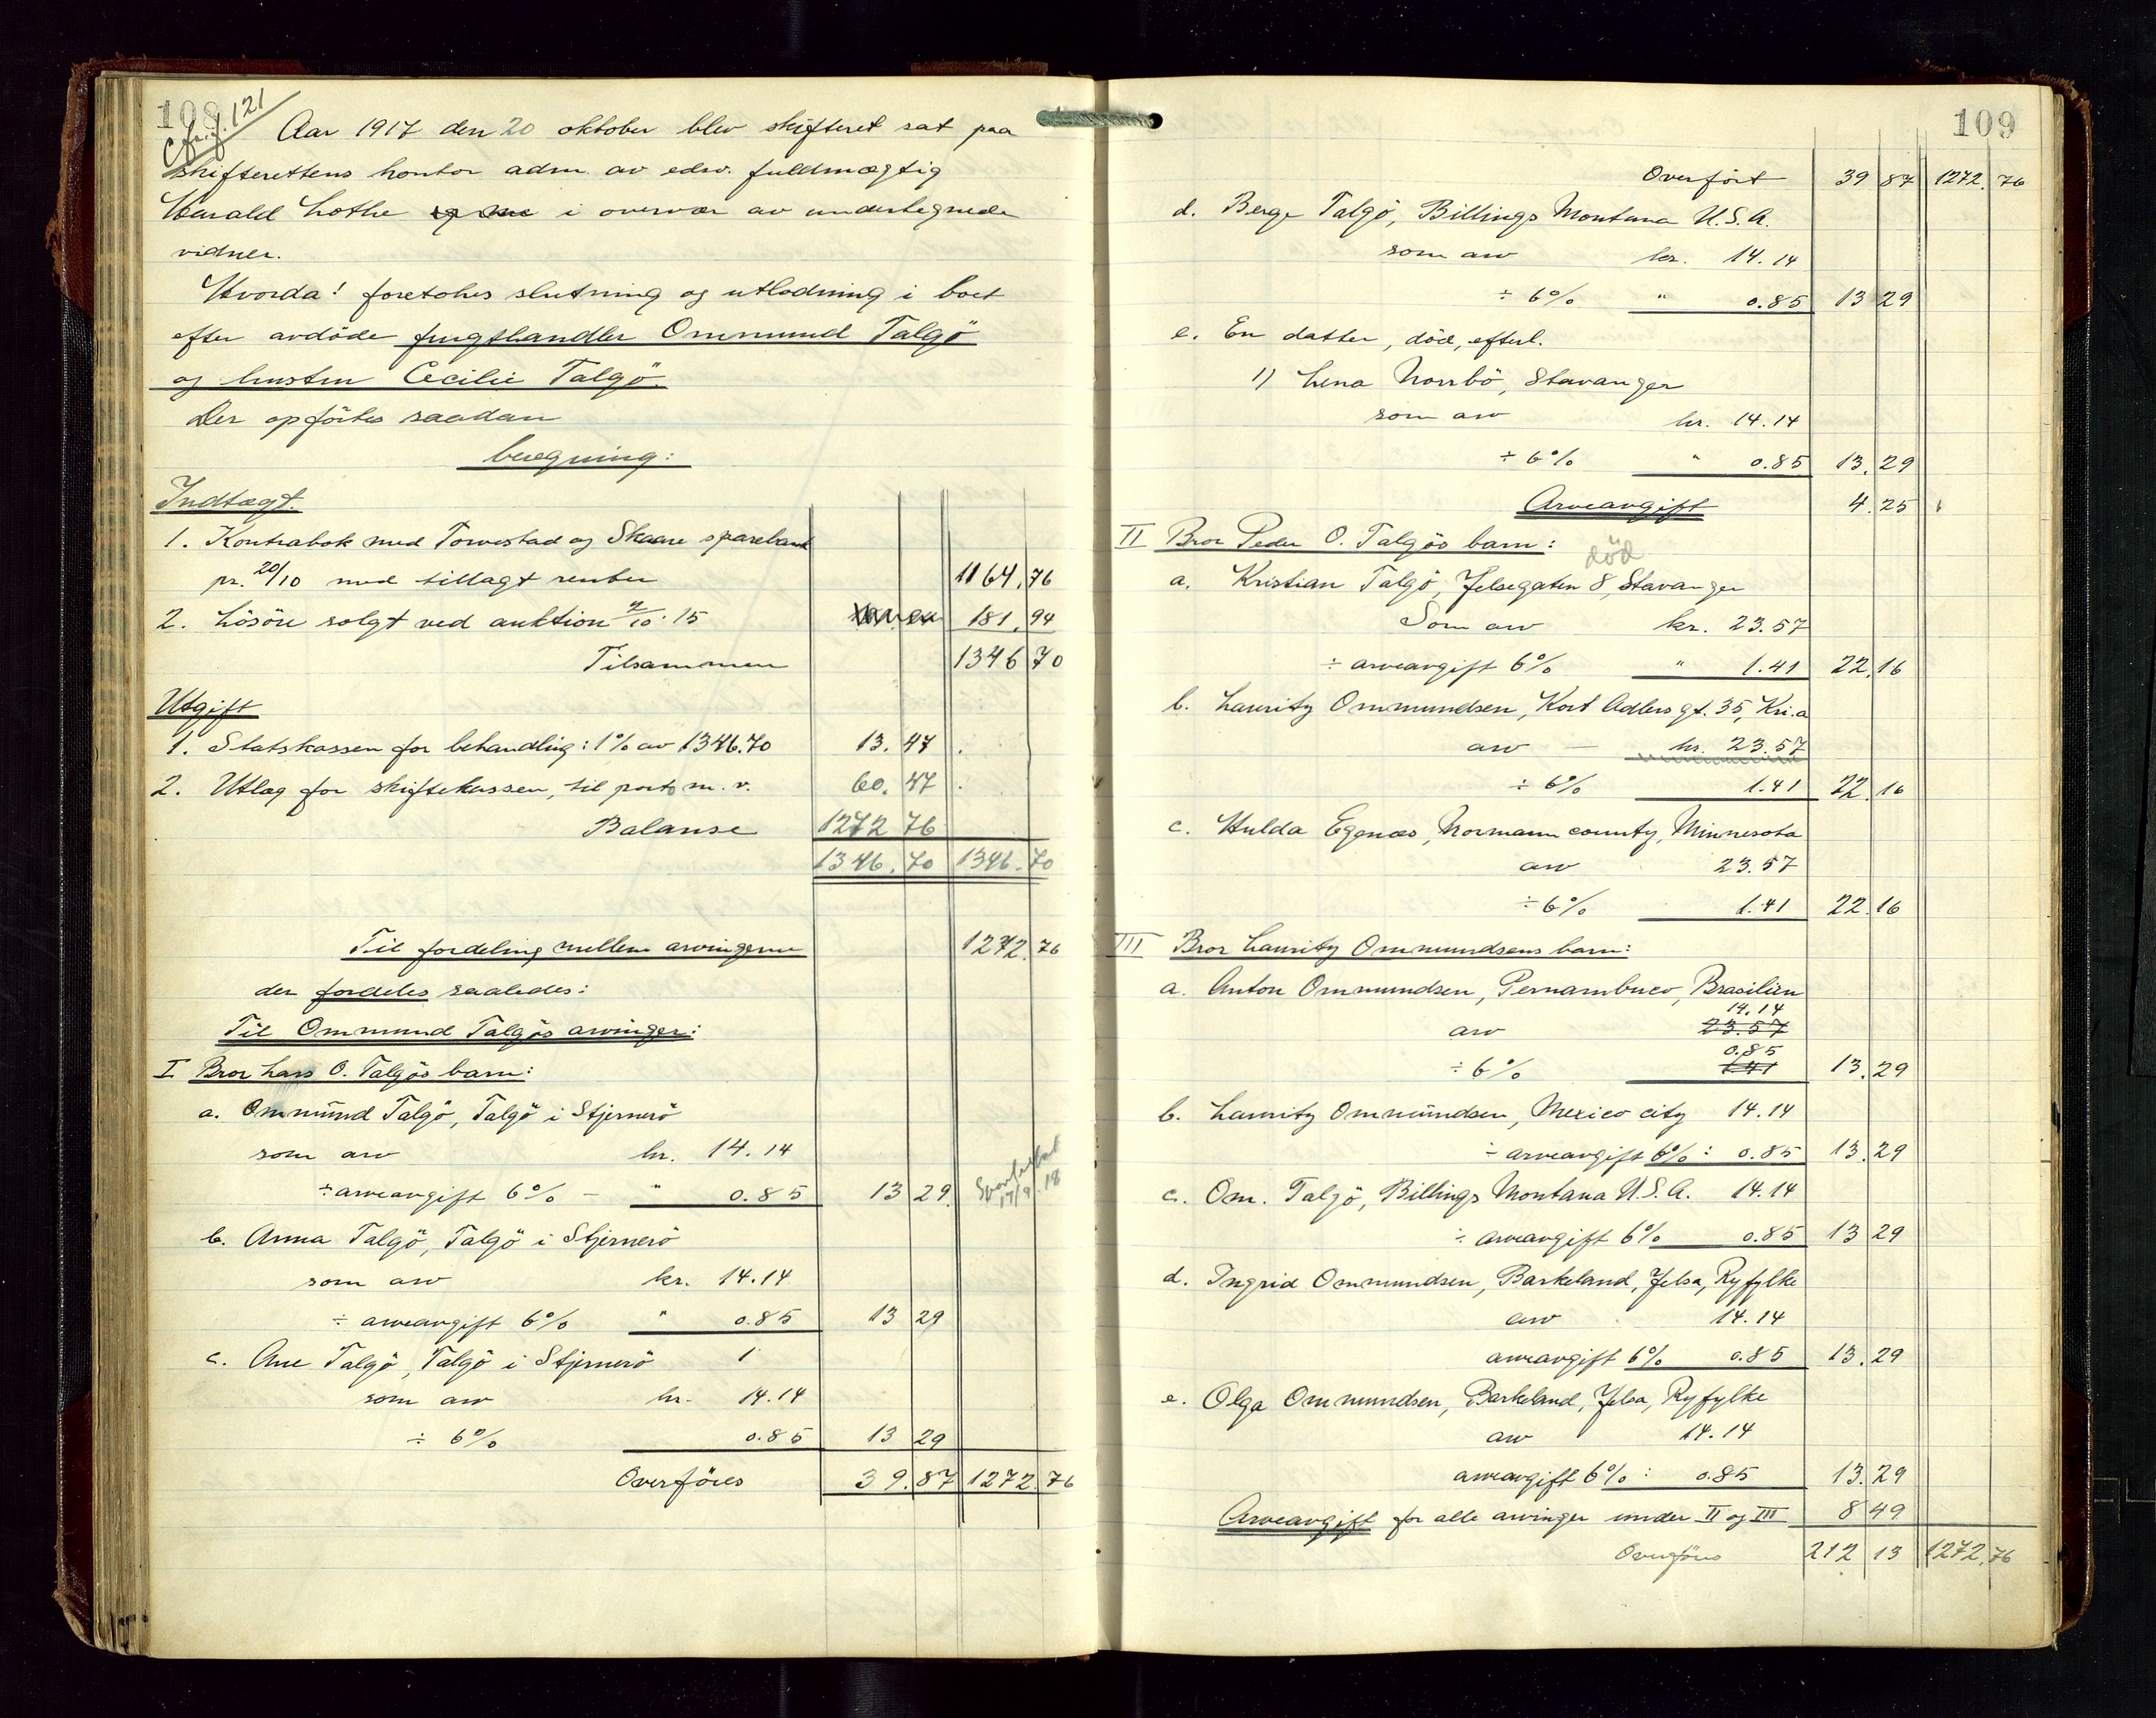 108
Cfrf. 121
Aar 1917 den 20 oktober blev skifteret sat paa
skifterettens kontor adm. av edsv. fuldmægtig
Harald Lothe i overvær av undertegnede
vidner.
Hvorda! foretokes slutning og utlodning i boet
efter avdöde Ommund Talgö
og hustru Cecilie Talgö.
Der opförtes saadan
beregning:
Indtægt.
1. Kontrabok med Torvestad og Skaare sparebank
pr. 20/10 med tillagt renter 1164.76
2. Lösöre solgt ved auktion 2/10. 15 181.94
Tilsammen 1346 70
Utgift
1. Statskassen for behandling: 1% av 1346.70 13.47
2. Utlæg for skiftekassen, til porto m. v. 60.47
Balanse 1272 76
1346.70 1346.70
Til fordeling mellem arvingerne 1272.76
der fordeles saaledes:
Til Ommund Talgös arvinger:
I Bror Lars O. Talgös barn:
a. Ommund Talgö, Talgö i Stjernerö
som arv kr. 14.14
÷ arveavgift 6% — " 0.85 13 29. 17/9.18
b. Anna Talgö, Talgö i Stjernerö
som arv kr. 14.14
÷ arveavgift 6% " 0.85 13 29
c. Ane Talgö, Talgö i Stjernerö 1
som arv kr. 14.14
÷ 6% 0.85 13 29
Overföres 39.87 1272.76
109
Overfört 39 87 1272.76
d. Berge Talgö, Billings Montana U.S.A.
som arv kr. 14.14
÷ 6% " 0.85 13 29
e. En datter, död, efterl.
1) Lena Norrbö, Stavanger
som arv kr. 14.14
÷ 6% " 0.85 13.29
Arveavgift 4.25
II Bror Peder O. Talgös barn:
död
a. Kristian Talgö, Jelsegaten 8, Stavanger
Som arv kr. 23.57
÷ arveavgift 6% " 1.41 22.16
b. Lauritz Ommundsen, Kort Adlers gt. 35, Kr.a
arv — kr. 23.57
÷ 6% 1.41 22.16
c. Hulda Egenæs, Normann county, Minnesota
arv 23.57
÷ 6% 1.41 22.16
III Bror Lauritz Ommundsens barn:
a. Anton Ommundsen, Pernambuco, Brasilien
14.14
arv 23.57
0.85
÷ 6% 1.41 13.29
b. Lauritz Ommundsen, Mexico city 14.14
÷ arveavgift 6%: 0.85 13.29
c. Om. Talgö, Billings Montana U.S.A. 14.14
÷ arveavgift 6% 0.85 13 29
d. Ingrid Ommundsen, Barkeland, Jelsa, Ryfylke
arv 14.14
arveavgift 6% 0.85 13.29
e. Olga Ommundsen, Barkeland, Jelsa, Ryfylke
arv 14.14
arveavgift 6%: 0.85 13.29
Arveavgift for alle arvinger under II og III 8 49
Overföres 212 13 1272.76